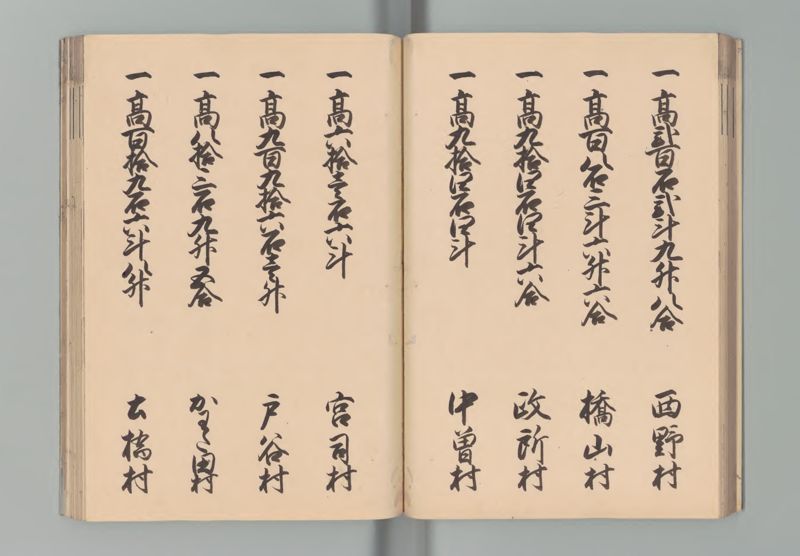 一 高弐百石弐斗九升八合 西野村
一 高百八石二斗六升六合 橋山村
一 高九拾四石四斗六合 政所村
一 高九拾四石四斗 中曽村
一 高六拾壱石六斗 宮司村
一 高九百九拾六石壱升 戸谷村
一 高八拾二石九升五合 田村
一 高百拾九石六斗八升 土橋村